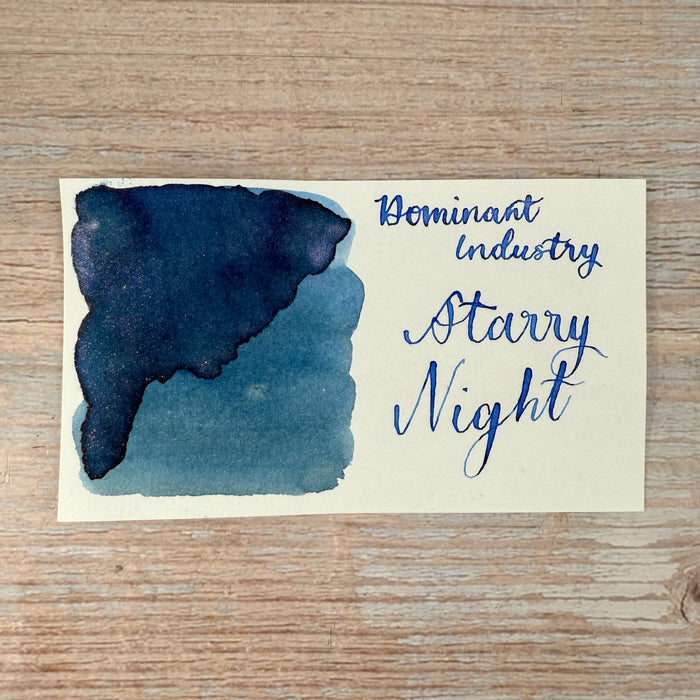 Dominant
Industry
Starry
Night